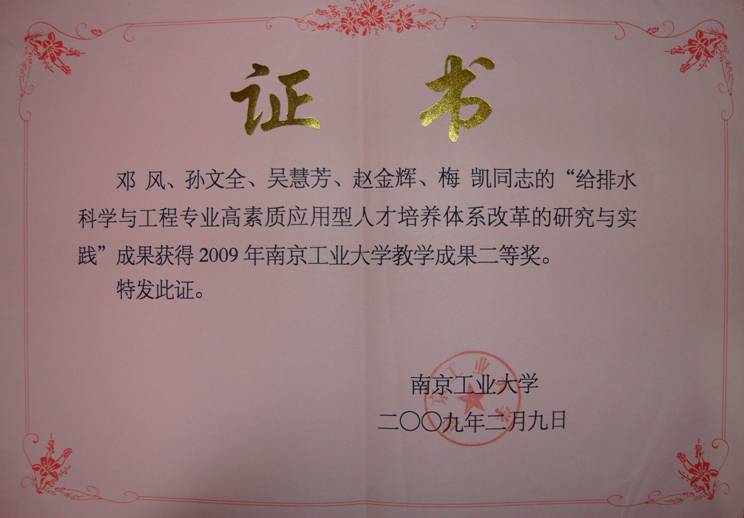 证 书
邓 风、孙文全、吴慧芳、赵金辉、梅 凯同志的“给排水
科学与工程专业高素质应用型人才培养体系改革的研究与实
践”成果获得 2009 年南京工业大学教学成果二等奖。
特发此证。
南京工业大学
二〇〇九年二月九日